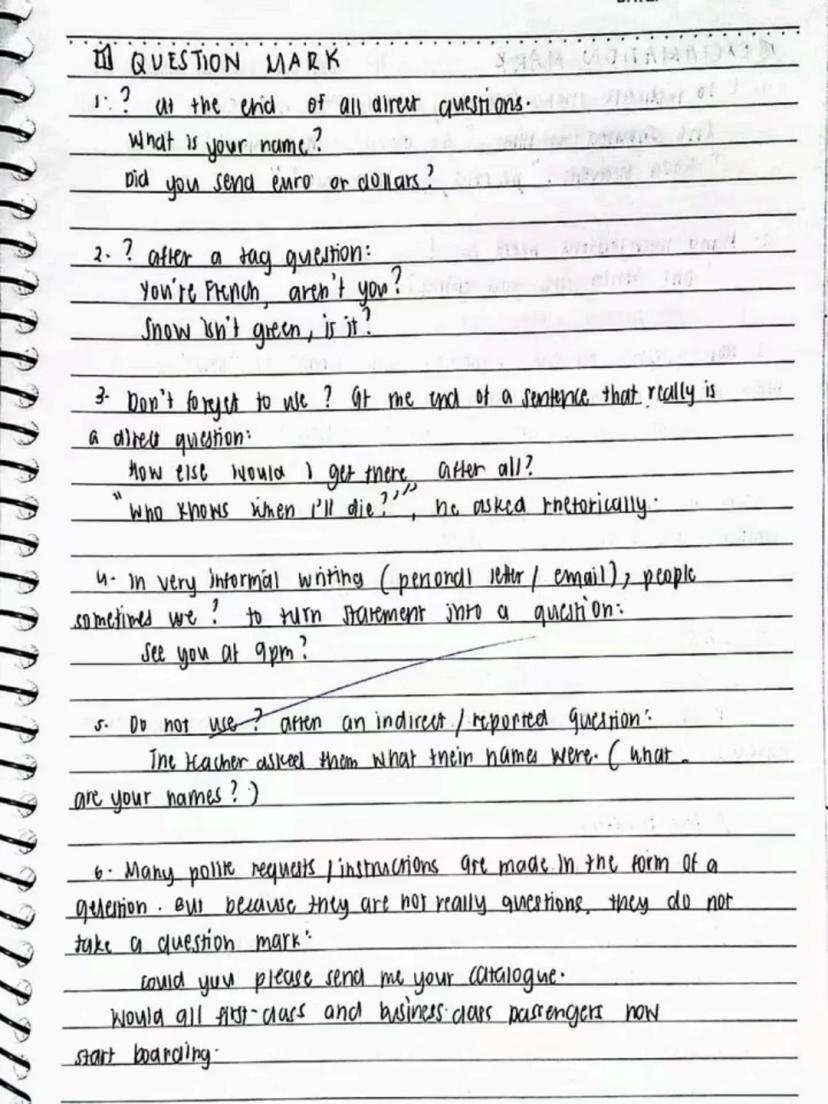 QUESTION MARK
1. ? at the end of all direct questions.
What is your name?
Did you send euro or dollars?
2. ? after a tag question:
You're French, aren't you?
Snow isn't green, is it?
3. Don't forget to use ? at the end of a sentence that really is
a direct question:
How else would I get there, after all?
"Who knows when I'll die?'"", he asked rhetorically.
4. In very informal writing (personal letter / email), people
sometimes use ? to turn statement into a question:
See you at 9pm?
5. Do not use ? after an indirect / reported question:
The teacher asked them what their names were. (what
are your names?)
6. Many polite requests / instructions are made in the form of a
question. But because they are not really questions, they do not
take a question mark:
Could you please send me your catalogue.
Would all first-class and business-class passengers now
start boarding.